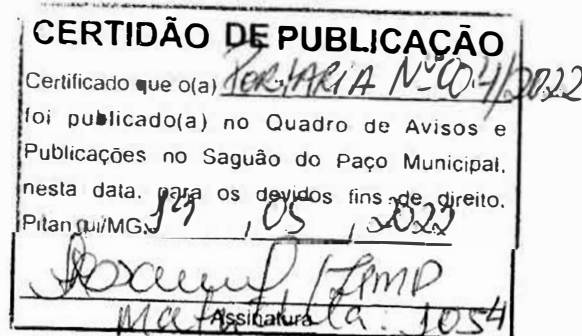 CERTIDÃO DE PUBLICAÇÃO
Certificado que o(a) PORTARIA Nº 004/2022
foi publicado(a) no Quadro de Avisos e
Publicações no Saguão do Paço Municipal,
nesta data, para os devidos fins de direito.
Pitangui/MG, 05, 2022
Matrícula: 1054
Assinatura